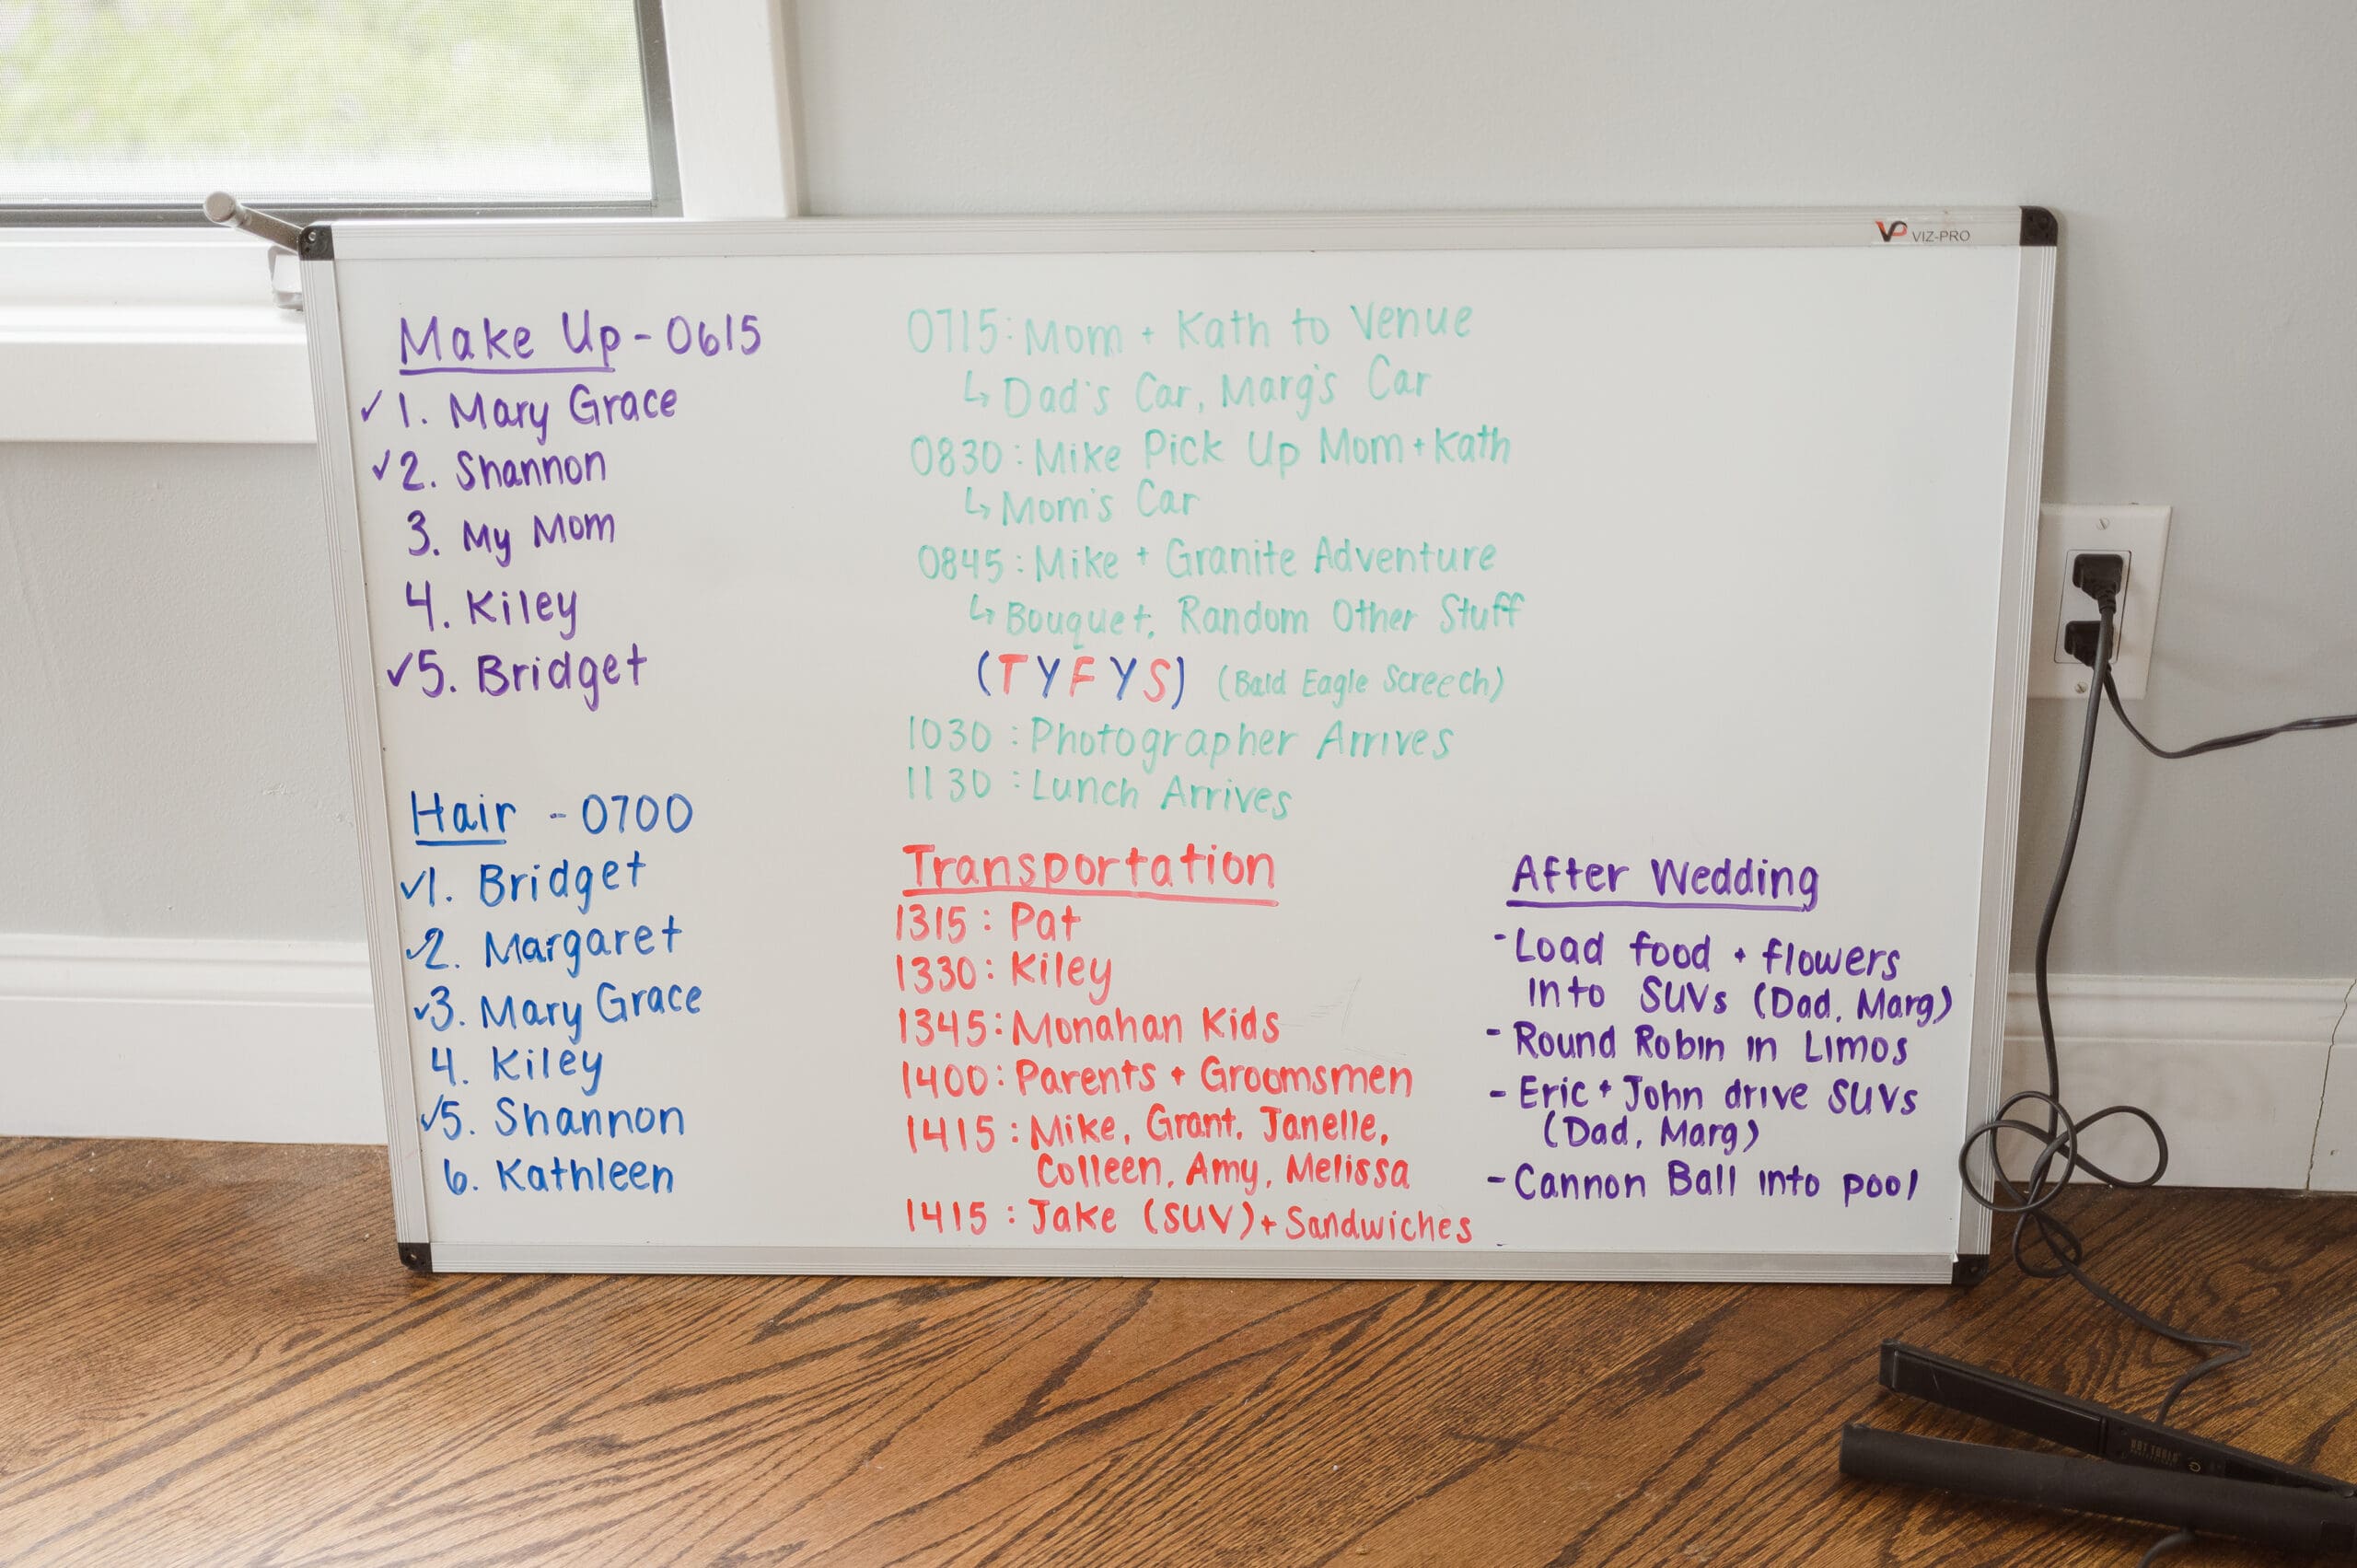 VP VIZ-PRO
Make Up - 0615
✓ 1. Mary Grace
✓ 2. Shannon
3. My Mom
4. Kiley
✓ 5. Bridget
Hair - 0700
✓ 1. Bridget
✓ 2. Margaret
✓ 3. Mary Grace
4. Kiley
✓ 5. Shannon
6. Kathleen
0715: Mom + Kath to Venue
↳ Dad's Car, Marg's Car
0830: Mike Pick Up Mom + Kath
↳ Mom's Car
0845: Mike + Granite Adventure
↳ Bouquet, Random Other Stuff
(TYFYS) (Bald Eagle Screech)
1030: Photographer Arrives
1130: Lunch Arrives
Transportation
1315: Pat
1330: Kiley
1345: Monahan Kids
1400: Parents + Groomsmen
1415: Mike, Grant, Janelle,
Colleen, Amy, Melissa
1415: Jake (SUV) + Sandwiches
After Wedding
- Load food + flowers
into SUVs (Dad, Marg)
- Round Robin in Limos
- Eric + John drive SUVs
(Dad, Marg)
- Cannon Ball into pool
HOT TOOLS